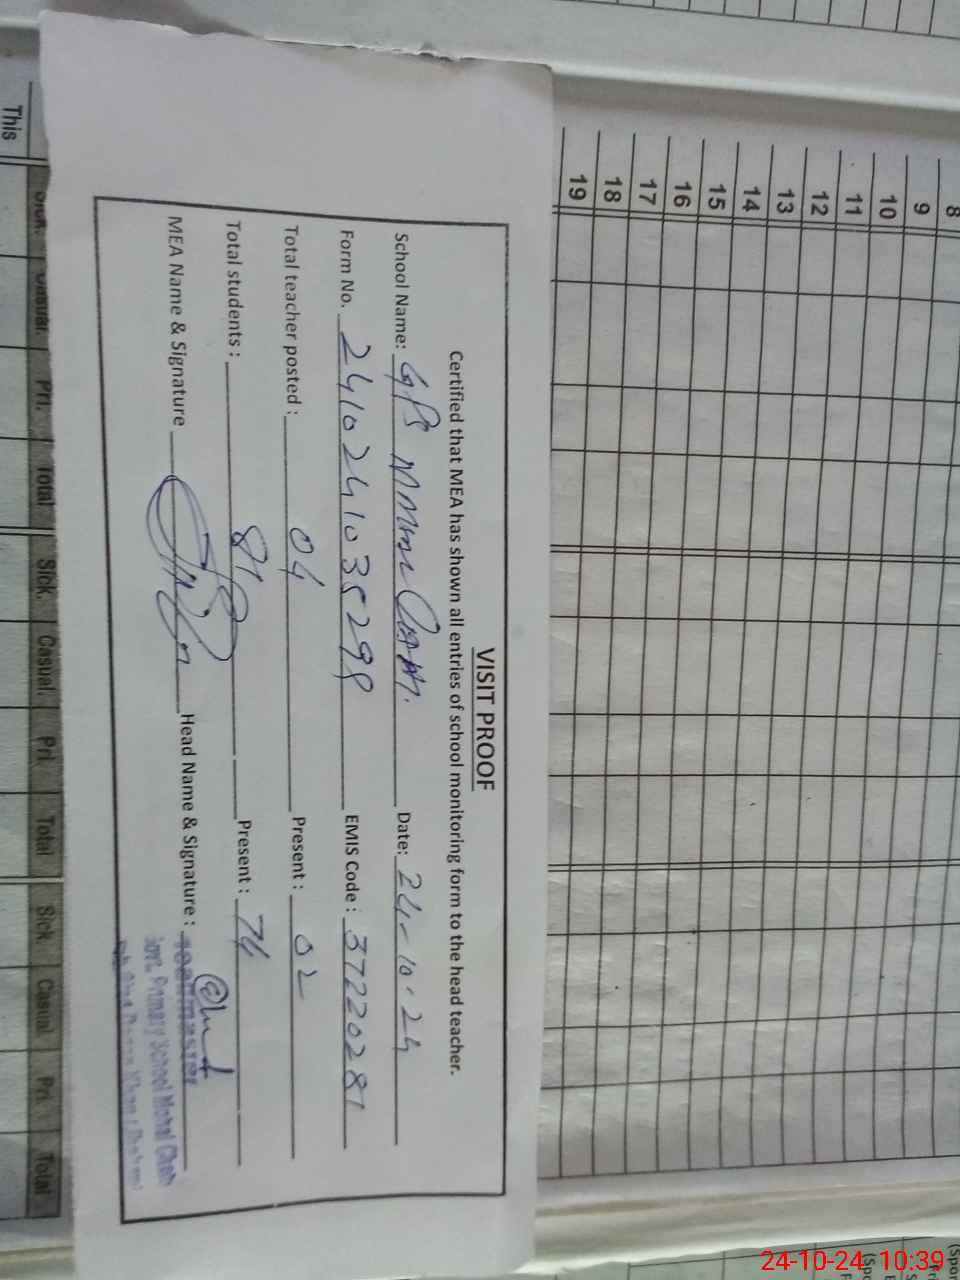 VISIT PROOF
Certified that MEA has shown all entries of school monitoring form to the head teacher.
School Name: GPS Date: 24-10-24
Form No. 2410241035298 EMIS Code: 37220281
Total teacher posted: 04 Present: 02
Total students: 81 Present: 74
MEA Name & Signature Head Name & Signature:
Headmaster
Govt. Primary School
8
9
10
11
12
13
14
15
16
17
18
19
This
Sick. Casual. Pri. Total Sick. Casual. Pri. Total Sick Casual Pri. Total
24-10-24 10:39